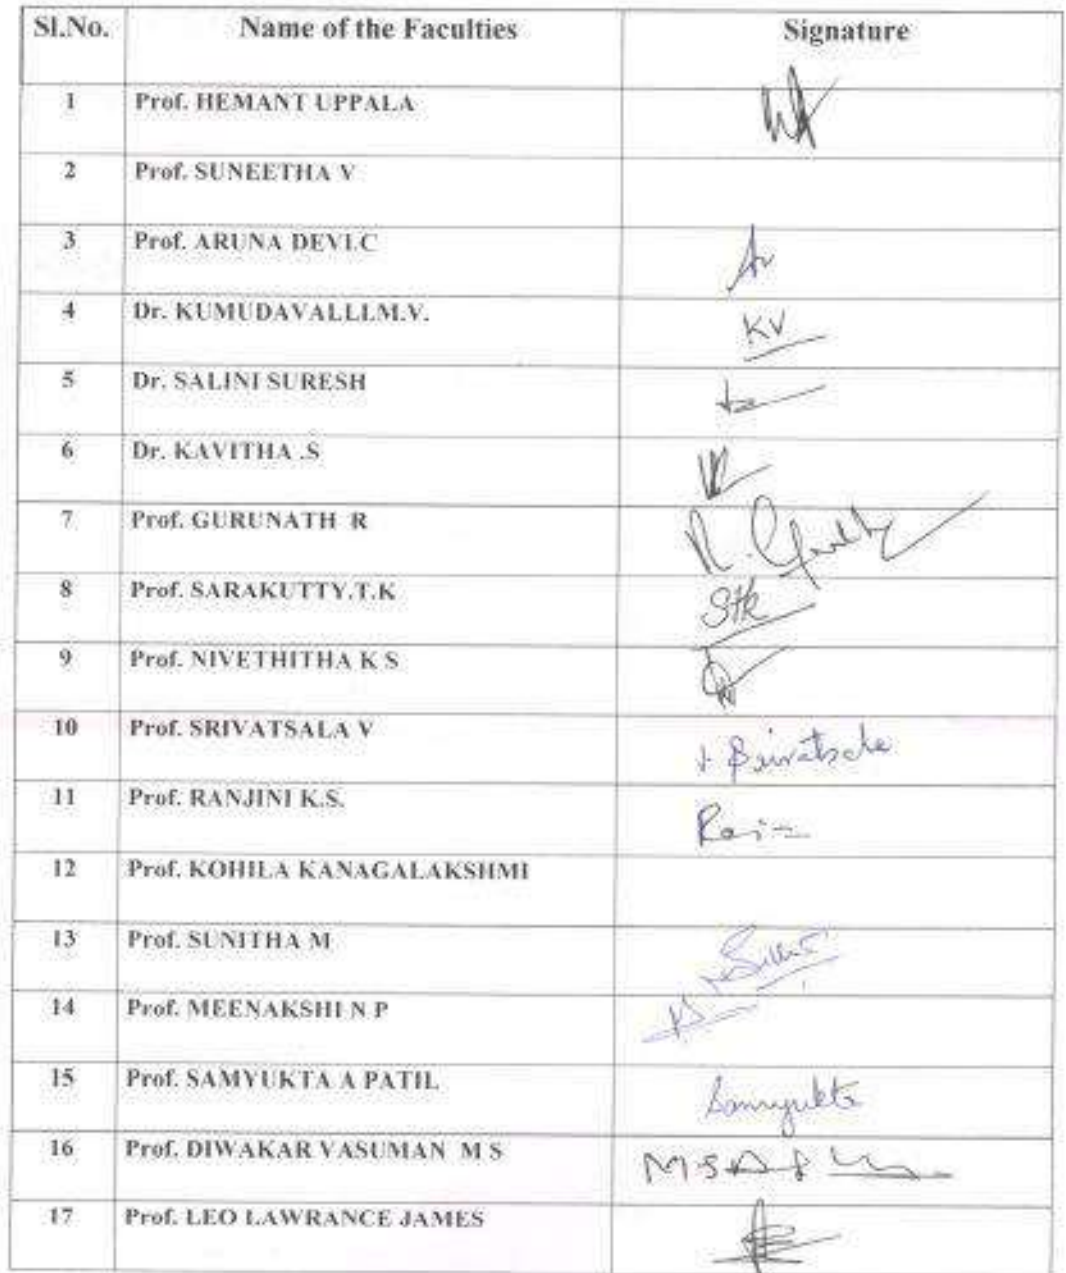 Sl.No. Name of the Faculties Signature
1 Prof. HEMANT UPPALA
2 Prof. SUNEETHA V
3 Prof. ARUNA DEVI.C
4 Dr. KUMUDAVALLI.M.V. KV
5 Dr. SALINI SURESH
6 Dr. KAVITHA .S
7 Prof. GURUNATH R
8 Prof. SARAKUTTY.T.K Stk
9 Prof. NIVETHITHA K S
10 Prof. SRIVATSALA V
11 Prof. RANJINI K.S.
12 Prof. KOHILA KANAGALAKSHMI
13 Prof. SUNITHA M
14 Prof. MEENAKSHI N P
15 Prof. SAMYUKTA A PATIL Samyukta
16 Prof. DIWAKAR VASUMAN M S
17 Prof. LEO LAWRANCE JAMES